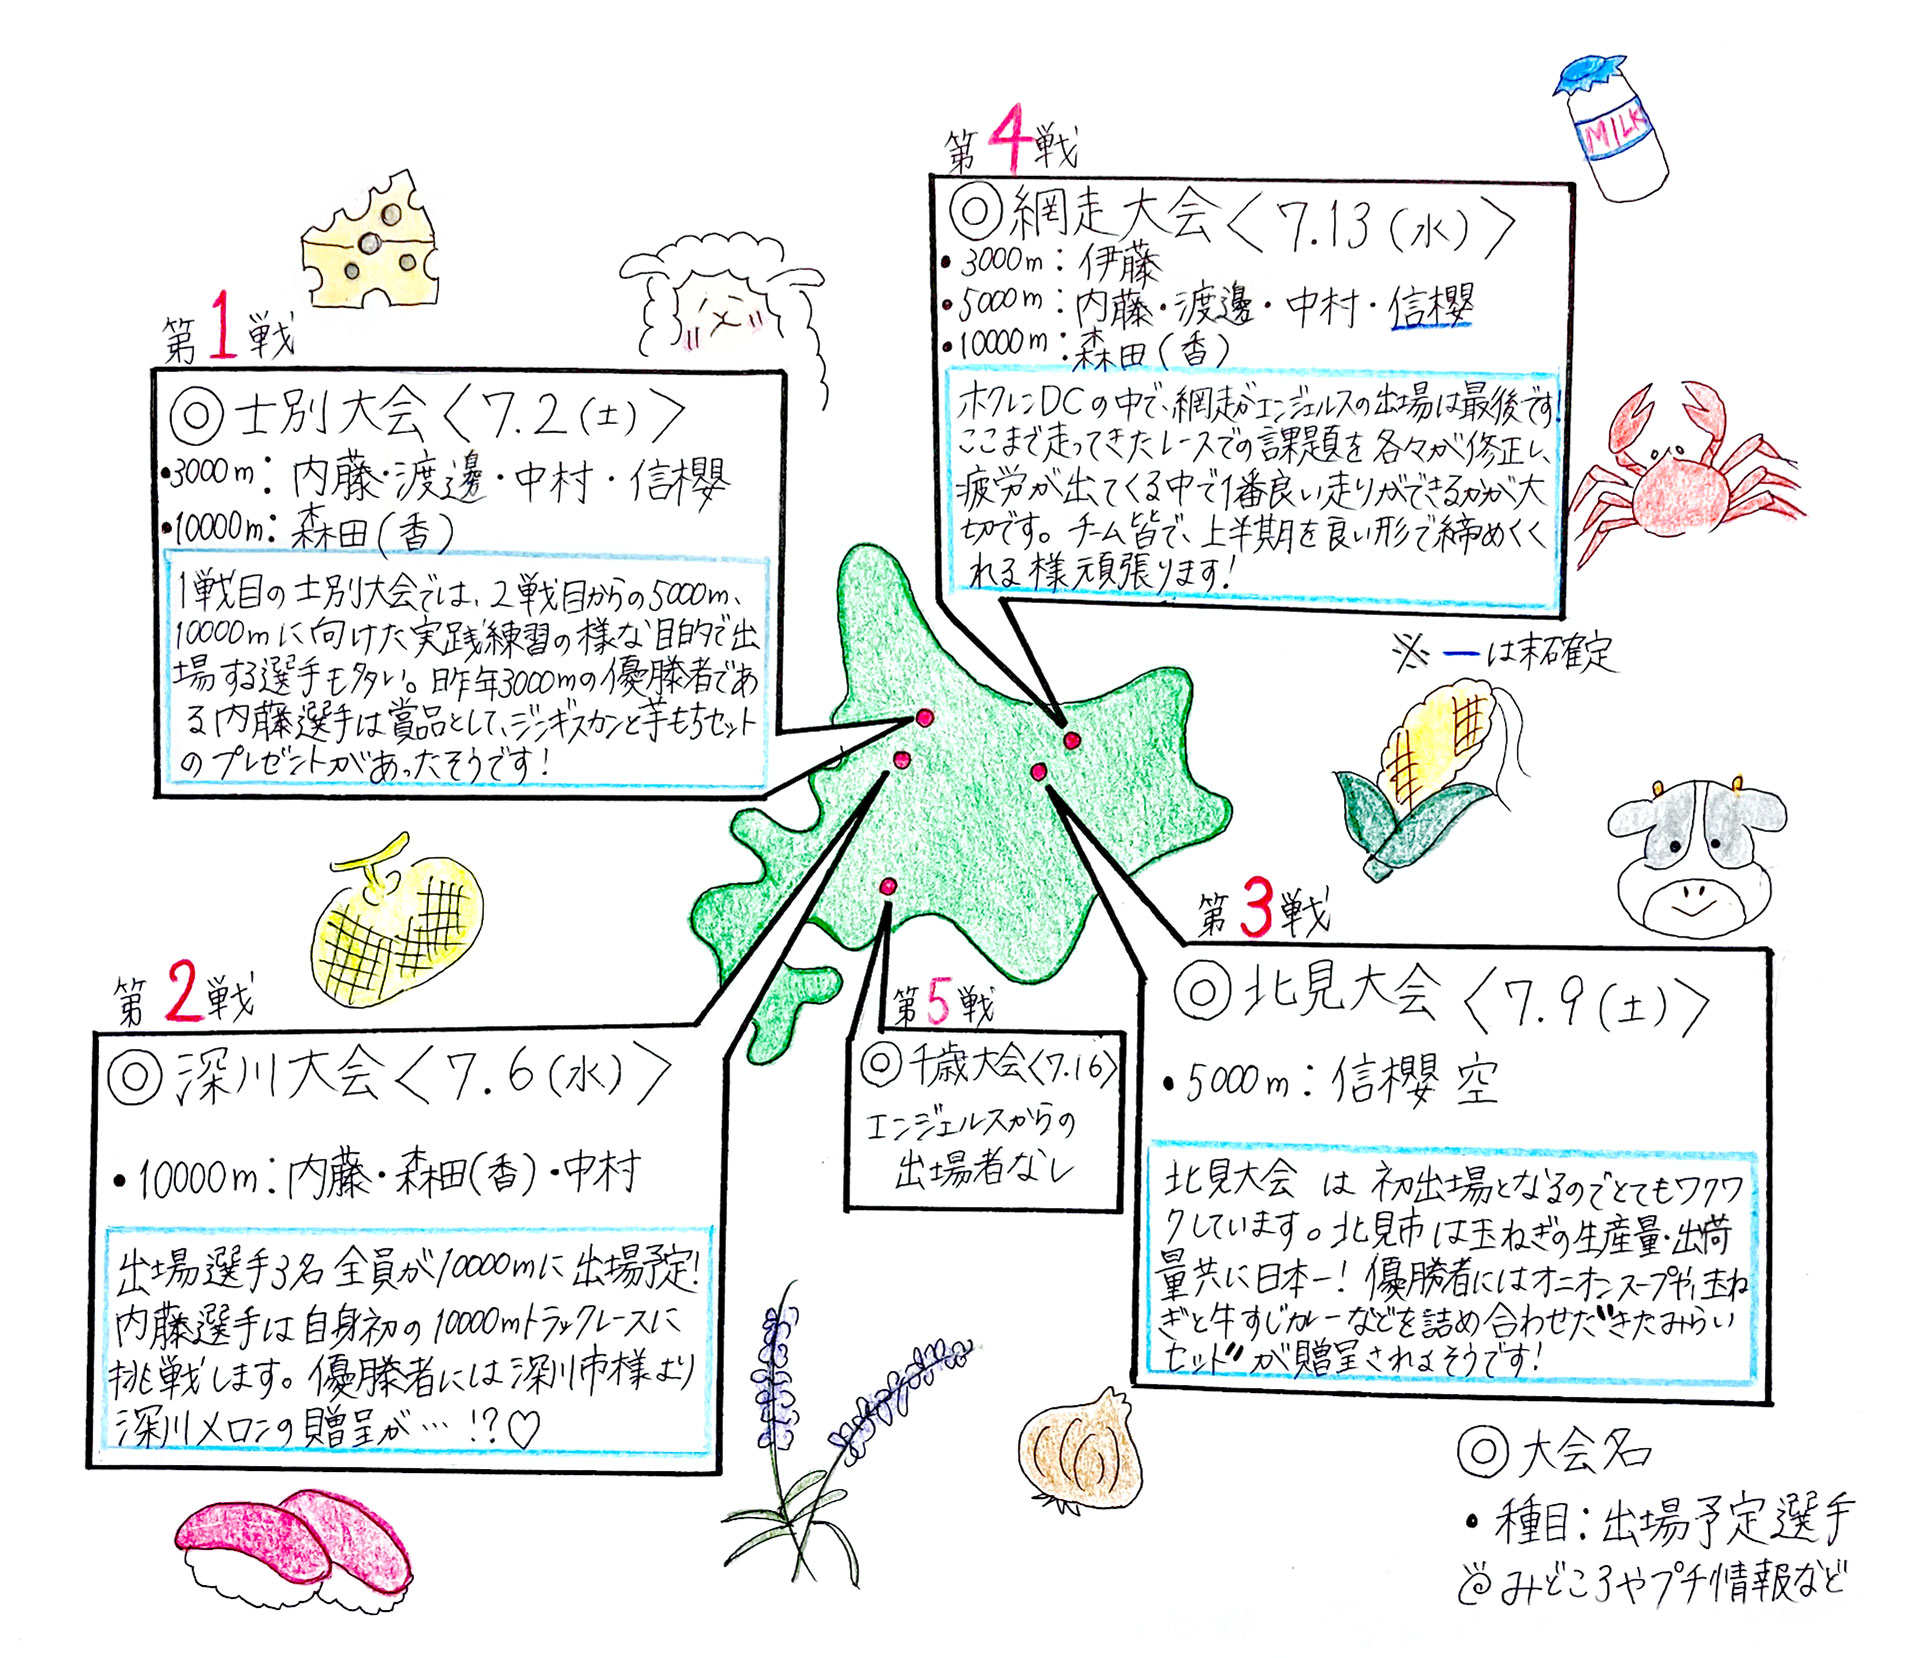 第1戦
◎士別大会〈7.2(土)〉
•3000m：内藤・渡邊・中村・信櫻
•10000m：森田(香)
1戦目の士別大会では、2戦目からの5000m、
10000mに向けた実践練習の様な目的で出
場する選手も多い。昨年3000mの優勝者であ
る内藤選手は賞品として、ジンギスカンと芋もちセット
のプレゼントがあったそうです！
第2戦
◎深川大会〈7.6(水)〉
•10000m：内藤・森田(香)・中村
出場選手3名全員が10000mに出場予定！
内藤選手は自身初の10000mトラックレースに
挑戦します。優勝者には深川市様より
深川メロンの贈呈が…！？♡
第3戦
◎北見大会〈7.9(土)〉
•5000m：信櫻 空
北見大会は初出場となるのでとてもワクワ
クしています。北見市は玉ねぎの生産量・出荷
量共に日本一！優勝者にはオニオンスープや、玉ね
ぎと牛すじカレーなどを詰め合わせた"きたみらい
セット"が贈呈されるそうです！
第4戦
◎網走大会〈7.13(水)〉
•3000m：伊藤
•5000m：内藤・渡邊・中村・信櫻
•10000m：森田(香)
ホクレンDCの中で、網走がエンジェルスの出場は最後です！
ここまで走ってきたレースでの課題を各々が修正し、
疲労が出てくる中で1番良い走りができるかが大
切です。チーム皆で、上半期を良い形で締めくく
れる様頑張ります！
※ーは未確定
第5戦
◎千歳大会〈7.16〉
エンジェルスからの
出場者なし
◎大会名
•種目：出場予定選手
みどころやプチ情報など
MILK